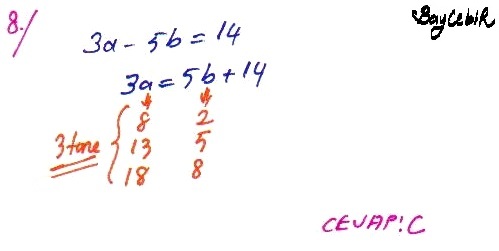 8./
BayCebiR
3a - 5b = 14
3a = 5b + 14
8 2
3 tane 13 5
18 8
CEVAP: C